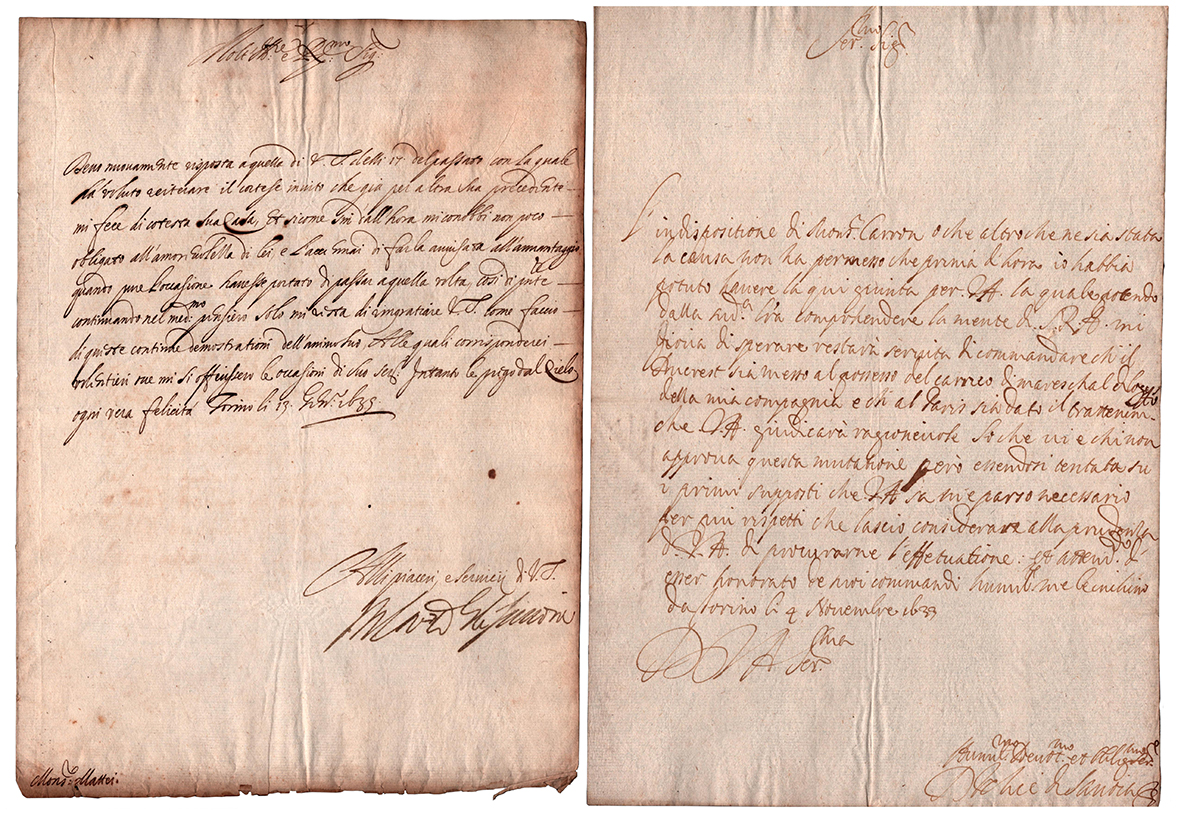 Molto Ill.re e R.mo Sig.r
Devo nuovamente risposta a quella di V. S. delli 17 del passato con la quale
ha voluto reiterare il cortese invito che già per altra sua precedente
mi fece di cotesta sua Casa, Et sicome fin dall'hora mi conobbi non poco
obligato all'amorevolezza di lei, e l'accennai di farla avvisata all'avantaggio
quando pure l'occasione havesse portato di passar a quella volta, così di pnte
continuando nel med.mo pensiero solo mi resta di ringratiare V. S. come faccio
di queste continue demostrationi dell'animo suo, Alle quali corrisponderei
volentieri ove mi si offerissero le occasioni di suo ser.o Intanto le prego dal Cielo
ogni vera felicità Torino li 13 1633
Alli piaceri, e servicij di V. S.
Mons.r Mattei.
Ser.mo Sig.r
L'indispositione di Mons.r Carron o che altro che ne sia stata
la causa non ha permesso che prima d'hora io habbia
potuto havere la qui giunta per V. A. la quale potendo
dalla sud.a l'ra comprendere la mente di S. A. R. mi
giova di sperare restarà servita di commandare ch'il
Ducrest sia messo al possesso del carrico di mareschal
della mia compagnia e ch'al Paris sia dato il trattenim.
che V. A. giudicarà ragionevole So che vi e chi non
approva questa mutatione però essendosi tentata su
i primi supposti che V. A. sa m'e parso necessario
per più rispetti che lascio considerare alla prudenza
di V. A. di procurarne l'effetuatione: et
esser honorato de suoi commandi humil.me le inchino
da Torino li 4 Novembre 1633
D V. A. Ser.ma
Humil.mo Devot.mo et Oblig.mo Ser.re
D Felice di Savoia